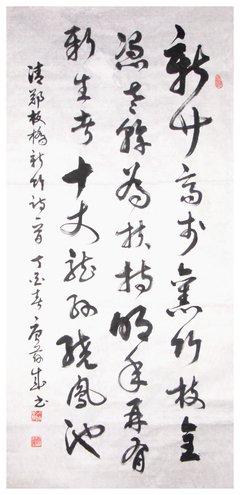 新竹高於舊竹枝全
憑老幹為扶持明年再有
新生者十丈龍孫繞鳳池
清鄭板橋新竹詩一首 丁酉春 成書